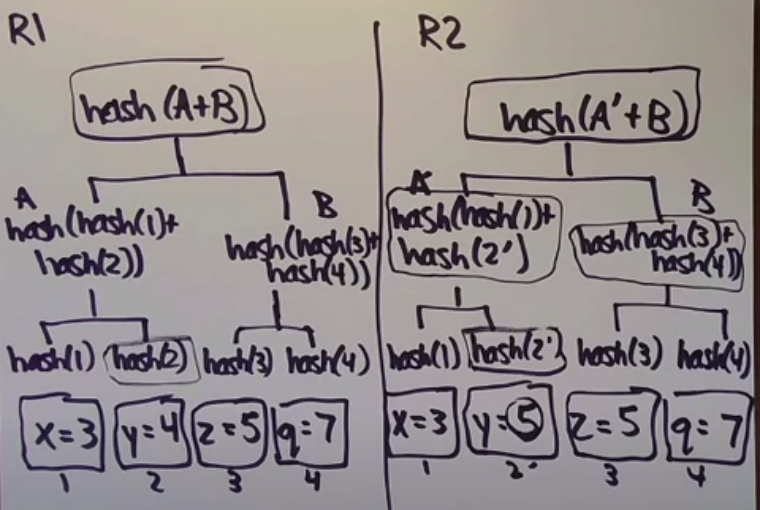 R1
hash(A+B)
A
hash(hash(1)+
hash(2))
B
hash(hash(3)+
hash(4))
hash(1) hash(2) hash(3) hash(4)
x=3 y=4 z=5 q=7
1 2 3 4
R2
hash(A'+B)
A'
hash(hash(1)+
hash(2')
B
hash(hash(3)+
hash(4))
hash(1) hash(2') hash(3) hash(4)
x=3 y=5 z=5 q=7
1 2' 3 4